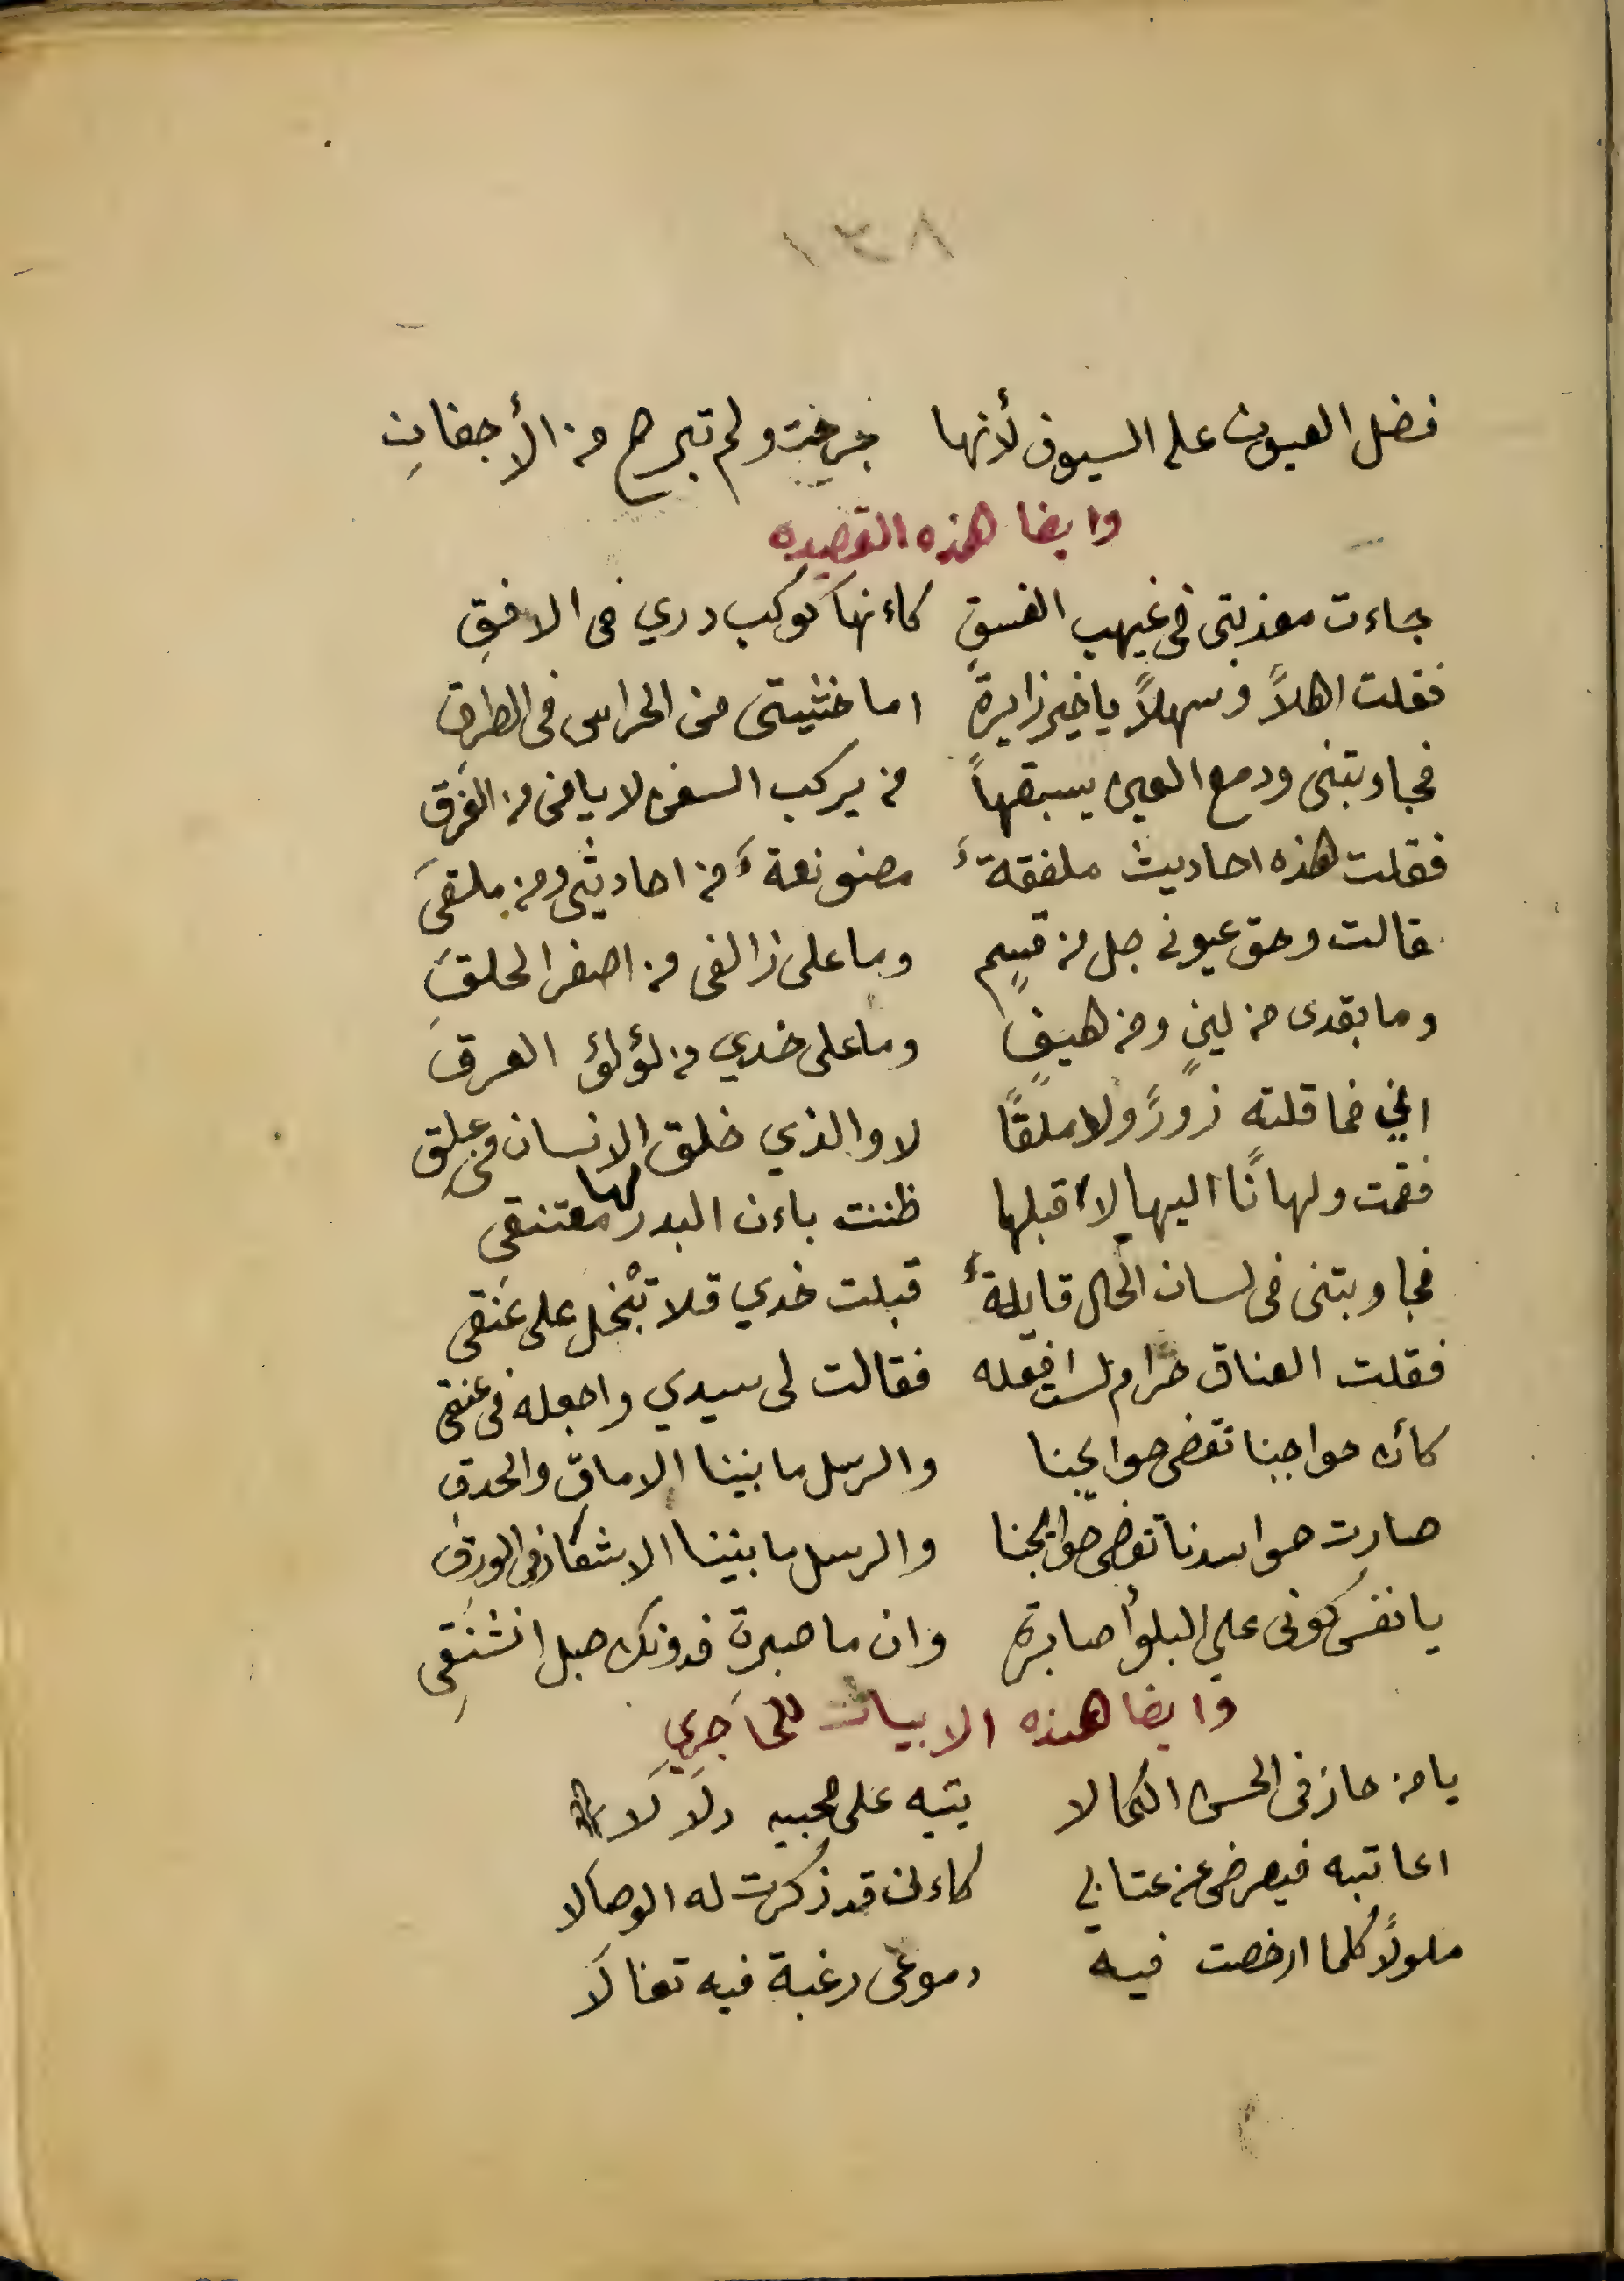 فضل العيون على السيوف لأنها جرحت ولم تبرح من الأجفانِ
وايضا هذه القصيده
جاءت معذبتى فى غيهب الغسقِ كاءنها كوكب دري فى الافقِ
فقلت اهلاً وسهلاً ياخير زايرة اما خشيتى من الحراس فى الطرق
فجاوبتنى ودمع العين يسبقها من يركب السفن لا يافى من الغرق
فقلت هذه احاديث ملفقة مصنونعة من احاديثى ومن ملقى
قالت وحق عيونى جل من قسمٍ وما على زالفى من اصفر الحلق
وما بقدى من لينٍ ومن هيفٍ وما على خدي من لؤلؤ العرق
اني فما قلته زورً ولا ملقًا لا والذي خلق الانسان من علق
فقمت ولهانًا اليها لا اقبلها ظننت باءن البدر لها معتنقى
فجاوبتنى فى لسان الحال قايلة قبلت خدي فلا تبْخل على عنقى
فقلت العناق حرام لست افعله فقالت لى سيدي واجعله فى عنقى
كائن حواجبنا تقضى حوايجنا والرسل ما بيننا الاماق والحدق
صارت حواسدنا تقضى حوايجنا والرسل ما بيننا الاشكاز فى الورق
يا نفس كونى على البلوأ صابرة وان ما صبرة فدونك حبل انشنقِى
وايضا هذه الابيات للحاجري
يا من حاز فى الحسن الكمالا يتيه على محبيه دلالا
اعاتبه فيعرض عن عتابي كاءنى قد ذكرت له الوصالا
ملولاً كلما ارخصت فيه دموعى رغبة فيه تغالا